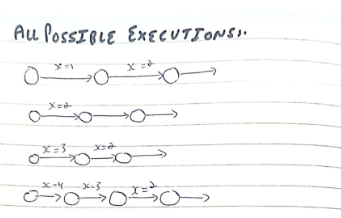 ALL POSSIBLE EXECUTIONS:
x=1 x=2
x=2
x=3 x=2
x=4 x=3 x=2